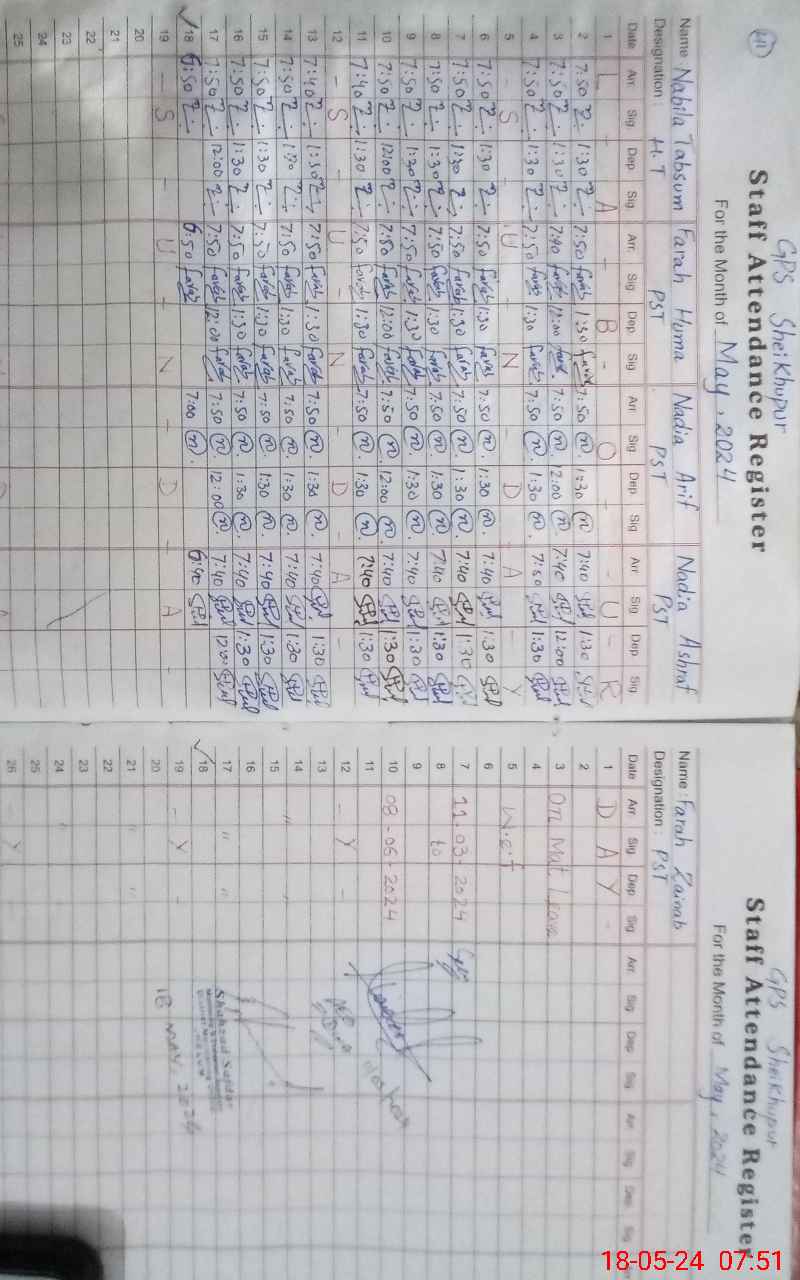 GPS Sheikhupur
Staff Attendance Register
For the Month of May, 2024
Name Nabila Tabsum Farah Huma Nadia Arif Nadia Ashraf
Designation: H.T PST PST PST
Date Arr. Sig Dep Sig Arr. Sig Dep Sig Arr Sig Dep Sig Arr Sig Dep Sig
1 L - A - B - O - U - R
2 7:50 1:30 7:50 Farah 1:30 Farah 7:50 n. 1:30 n 7:40 1:30
3 7:50 1:30 7:40 Farah 12:00 7:50 n. 2:00 n 7:40 12:00
4 7:50 1:30 7:50 Farah 1:30 Farah 7:50 n. 1:30 n. 7:40 1:30
5 - S - U - N - D - A - Y
6 7:50 1:30 7:50 Farah 1:30 Farah 7:50 n. 1:30 n. 7:40 1:30
7 7:50 1:30 7:50 Farah 1:30 Farah 7:50 n. 1:30 n. 7:40 1:30
8 7:50 1:30 7:50 Farah 1:30 Farah 7:50 n. 1:30 n. 7:40 1:30
9 7:50 1:30 7:50 Farah 1:30 Farah 7:50 n. 1:30 n. 7:40 1:30
10 7:50 12:00 7:50 Farah 12:00 Farah 7:50 n. 12:00 n. 7:40 1:30
11 7:40 1:30 7:50 Farah 1:30 Farah 7:50 n. 1:30 n. 7:40 1:30
12 - S - U - N - D - A -
13 7:40 1:30 7:50 Farah 1:30 Farah 7:50 n. 1:30 n. 7:40 1:30
14 7:50 1:30 7:50 Farah 1:30 Farah 7:50 n. 1:30 n. 7:40 1:30
15 7:50 1:30 7:50 Farah 1:30 Farah 7:50 n. 1:30 n. 7:40 1:30
16 7:50 1:30 7:50 Farah 1:30 Farah 7:50 n. 1:30 n. 7:40 1:30
17 7:50 12:00 7:50 Farah 12:00 Farah 7:50 n. 12:00 n. 7:40 12:00
18 6:50 6:50 Farah 7:00 n. 6:40
19 - S - U - N - D - A -
20
21
22
23
24
25
GPS Sheikhupur
Staff Attendance Register
For the Month of May, 2024
Name: Farah Zainab
Designation: PST
Date Arr. Sig Dep Sig Arr. Sig Dep Sig Arr Sig Dep Sig
1 D A Y -
2
3 On Mat Leave
4
5 w.e.f
6
7 11.03.2024
8 to
9
10 08-06-2024
11
12 - Y -
13
14 "
15
16
17 " "
18
19 - Y
20
21 "
22
23
24 "
25
26 - Y
Shahzad Safdar
18 MAY 2024
18-05-24 07:51